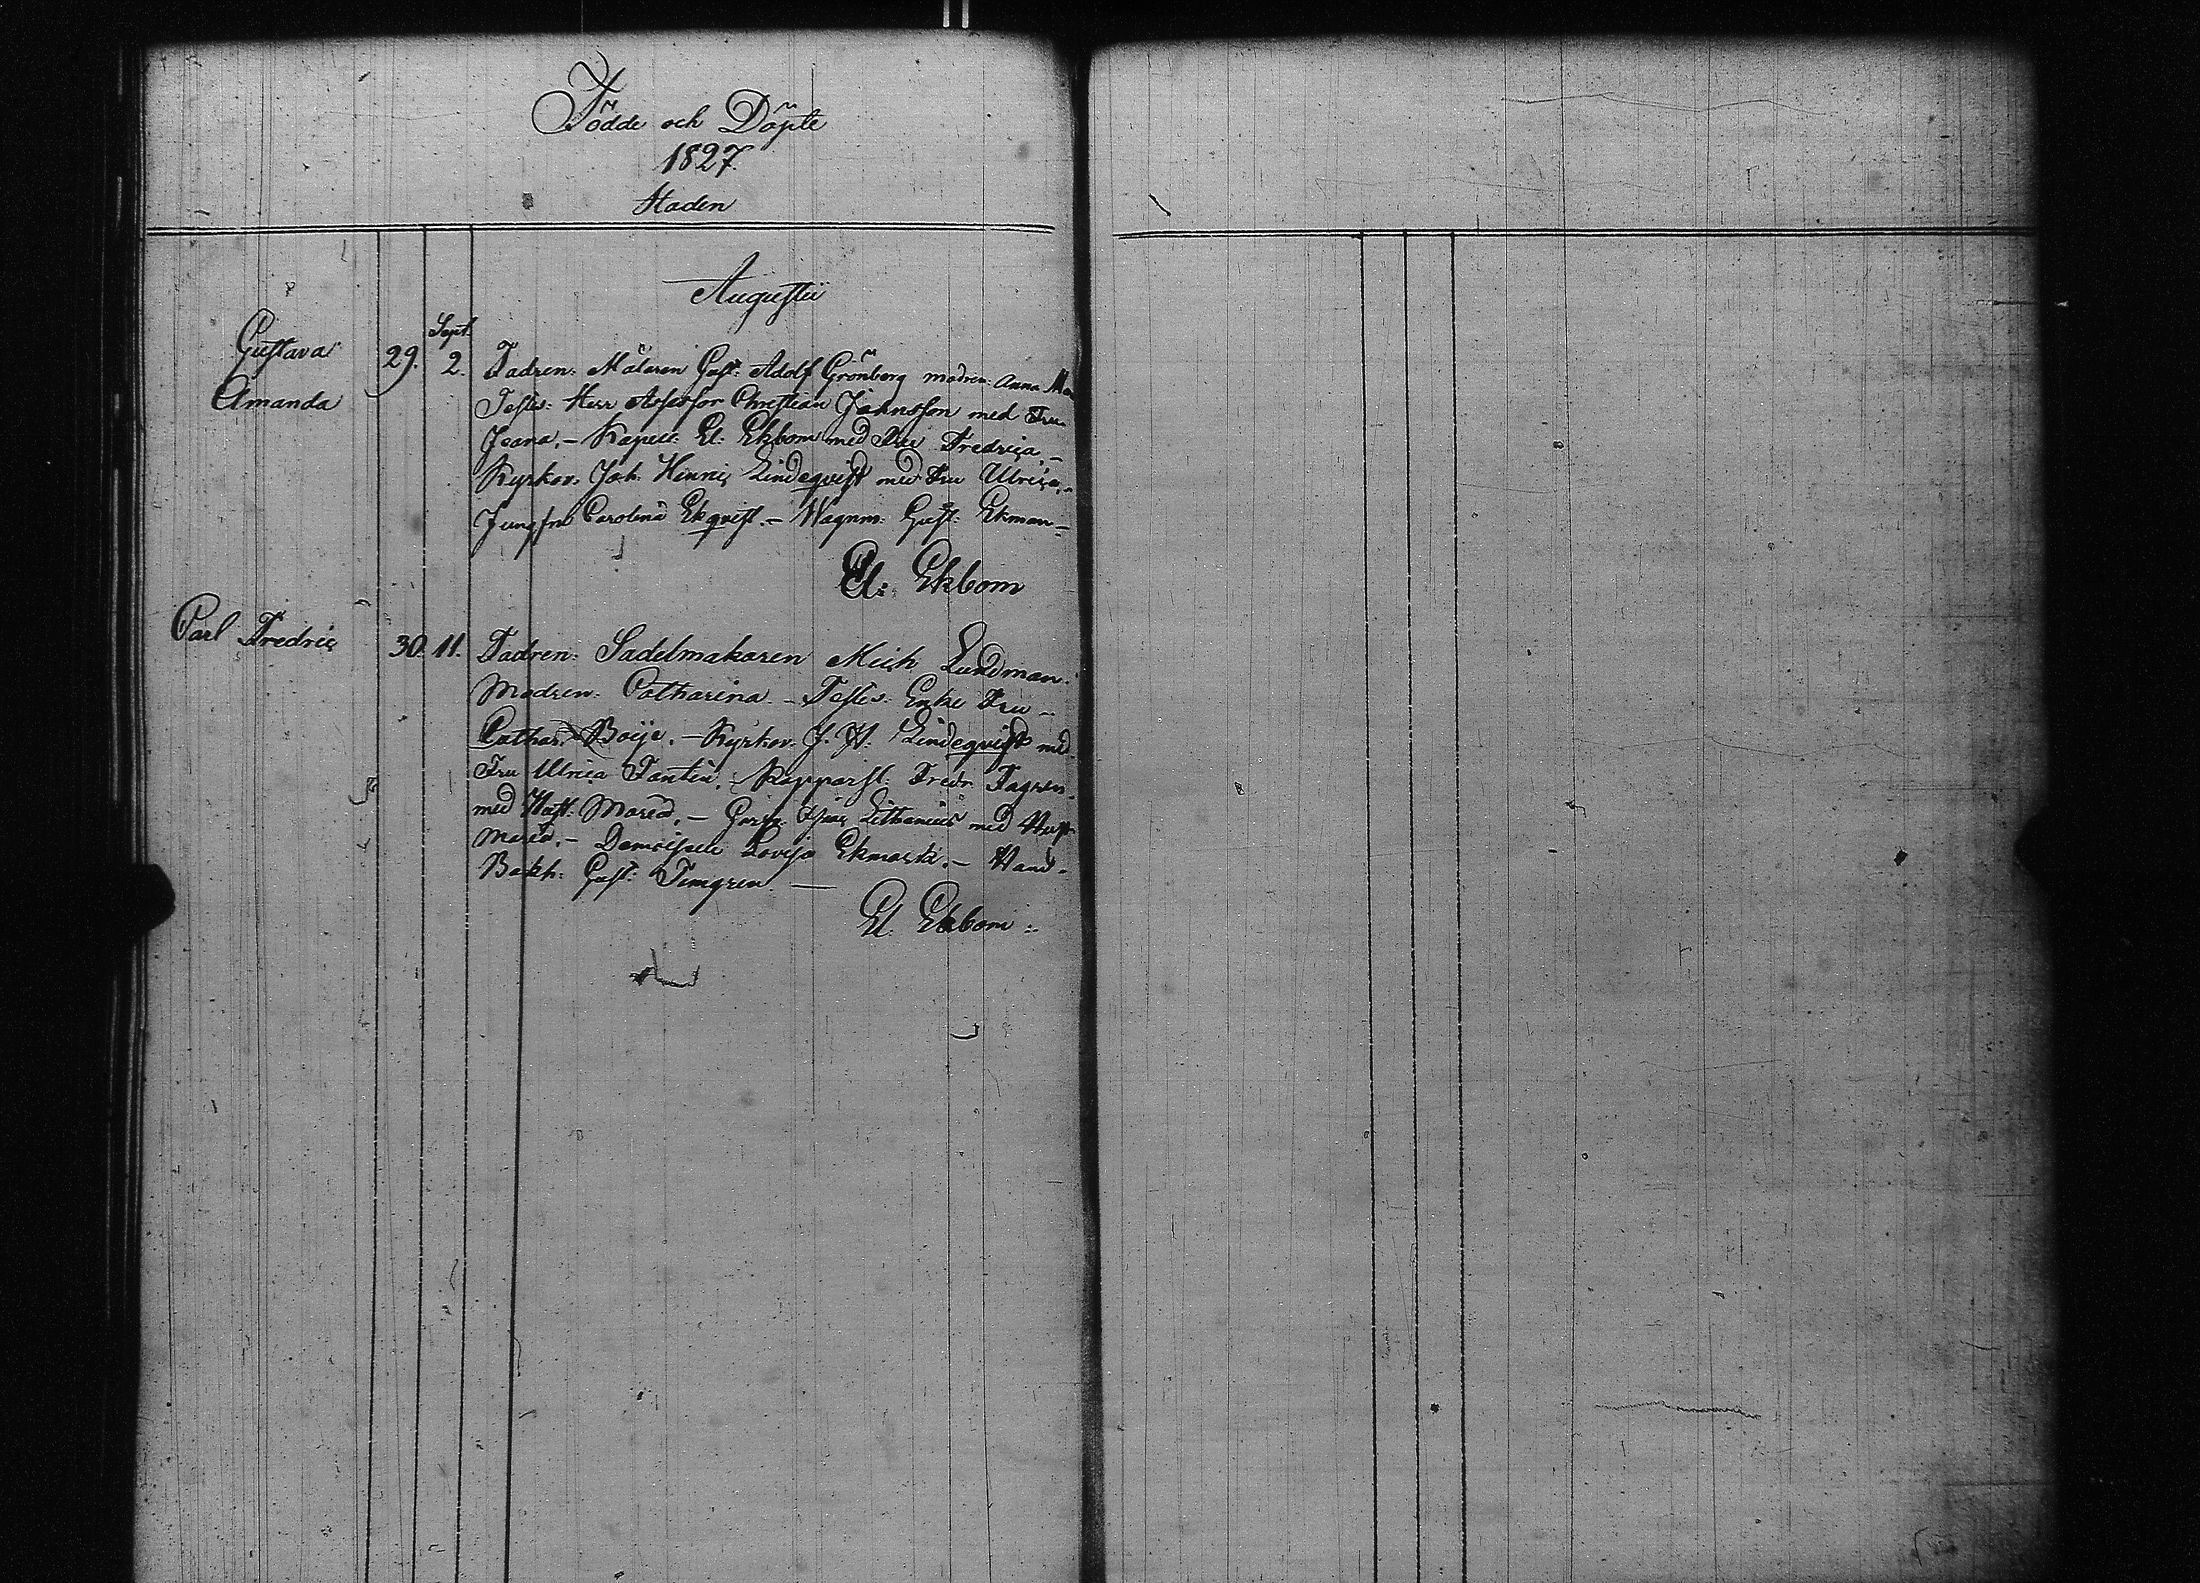 Födde och Döpte
1827.
Staden
Augusti
Sept.
Gustava 29. 2. Fadren: Målaren Gust: Adolf Grönberg modren: Anna Ma
Amanda Testes: Herr Assessor Christian Johnsson med Fru
Jeana. – Kapell: El: Ekbom med Fru Fredrica. –
Kyrkov: Joh. Henric Lindeqvist med Fru Ulrica. –
Jungfru Carolina Ekqvist. – Wagnm: Gust: Ekman –
El: Ekbom
Carl Fredric 30. 11. Fadren: Sadelmakaren Mich Lundman.
Modren: Catharina. – Testes: Enke Fru –
Cathar. Boije. – Kyrkov: J. H. Lindeqvist med
Fru Ulrica Fontin. Kopparsl: Fredr Fagren
med Hust: Maria. – Garfv: Lithenius med Hust
Maria. – Demoiselle Lovisa Ekmark. – Hand.
Bokh: Gust: Timgren. —
El. Ekbom: